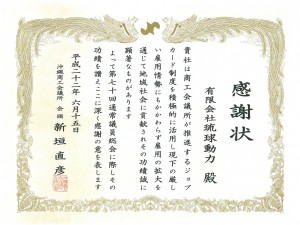 感謝状
有限会社琉球動力 殿
貴社は商工会議所が推進するジョブ
カード制度を積極的に活用し現下の厳し
い雇用情勢にもかかわらず雇用の拡大を
通じて地域社会に貢献されその功績誠に
顕著なものがあります
よって第七十回通常議員総会に際しその
功績を讃えここに深く感謝の意を表します
平成二十二年六月十五日
沖縄商工会議所 会頭 新垣直彦